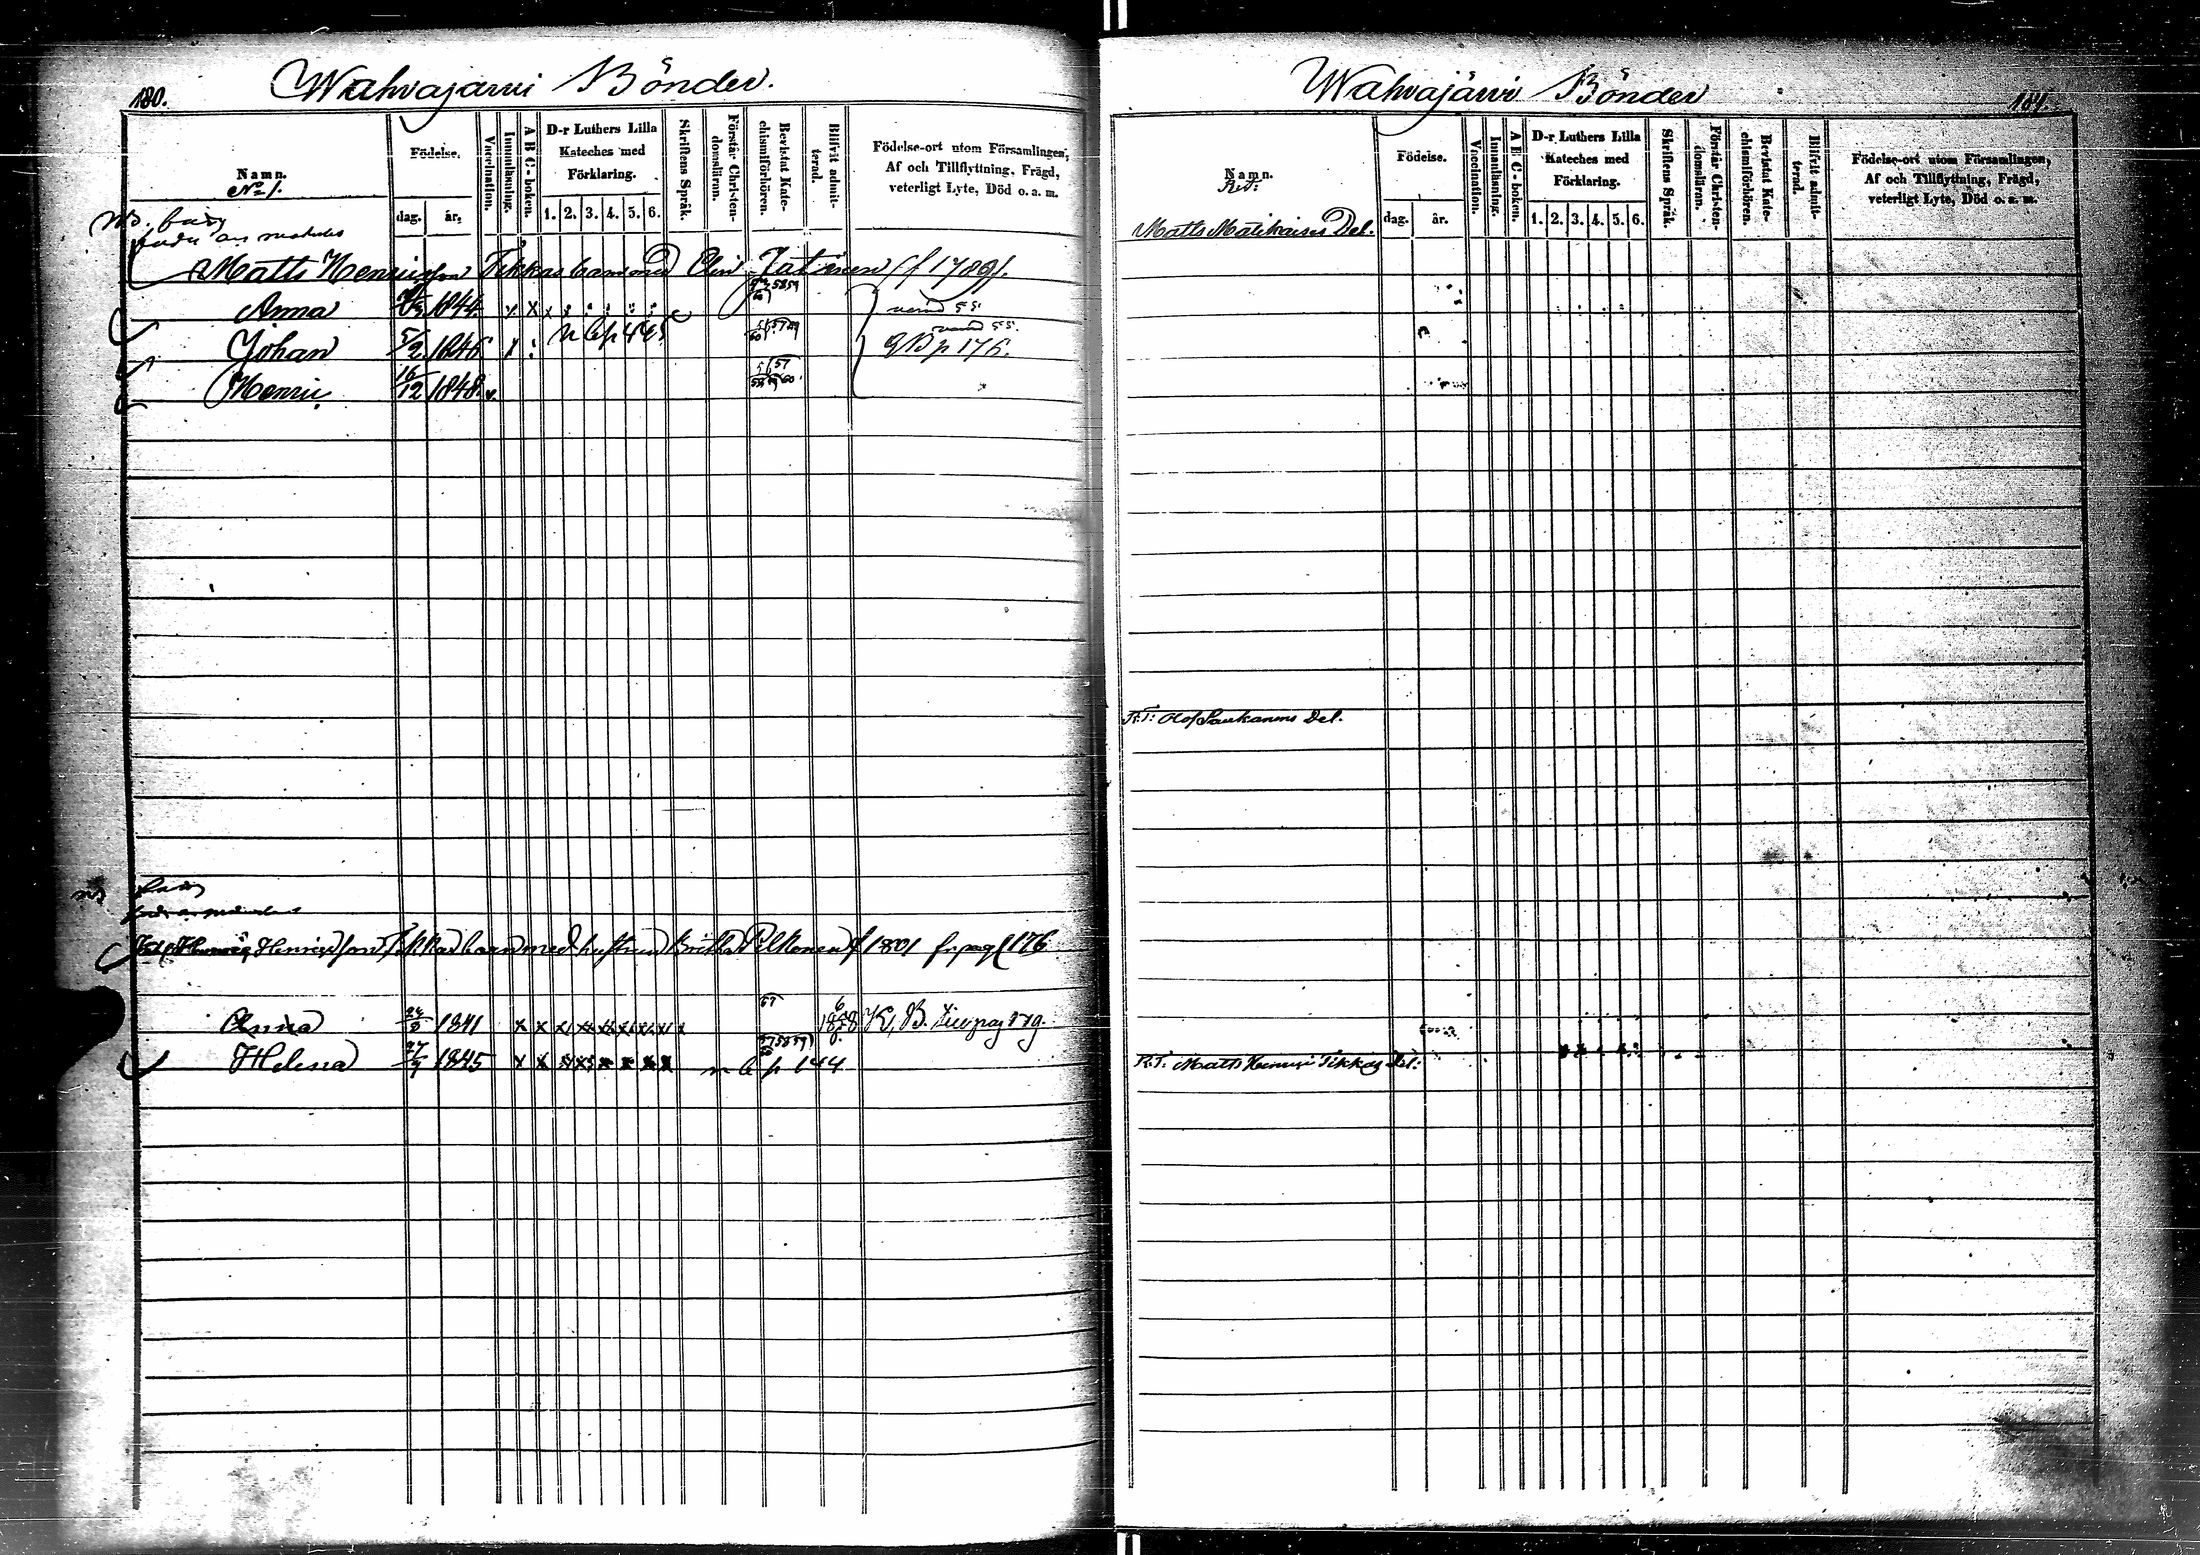 180.
Wahvajärvi Bönder.
Namn.
No 1.
Födelse.
dag.
år.
Vaccination.
Innanläsning.
A B C-boken.
D-r Luthers Lilla
Kateches med
Förklaring.
1. 2. 3. 4. 5. 6.
Skriftens Språk.
Förstår Christen-
domsläran.
Bevistat Kate-
chismiförhören.
Blifvit admit-
terad.
Födelse-ort utom Församlingen,
Af och Tillflyttning, Frägd,
veterligt Lyte, Död o. a. m.
Matts Henricsson Tikkas barn med Elin f 1789.
Anna 1844
Johan 5/2 1846 p 176.
Henric 16/12 1848
Henricsson Tikkas barn med hustrun Britha Pelkonen f 1801 fr pag 176
Anna 1841 6 1858 K, B.
Helena 27/9 1845 p 144
Wahvajärvi Bönder
181.
Namn.
Matts Matikaises Del.
Födelse.
dag.
år.
Vaccination.
Innanläsning.
A B C-boken.
D-r Luthers Lilla
Kateches med
Förklaring.
1. 2. 3. 4. 5. 6.
Skriftens Språk.
Förstår Christen-
domsläran.
Bevistat Kate-
chismiförhören.
Blifvit admit-
terad.
Födelse-ort utom Församlingen,
Af och Tillflyttning, Frägd,
veterligt Lyte, Död o. a. m.
R:T: Olof Saukonens Del.
R:T: Matts Henrics Tikkas Del: